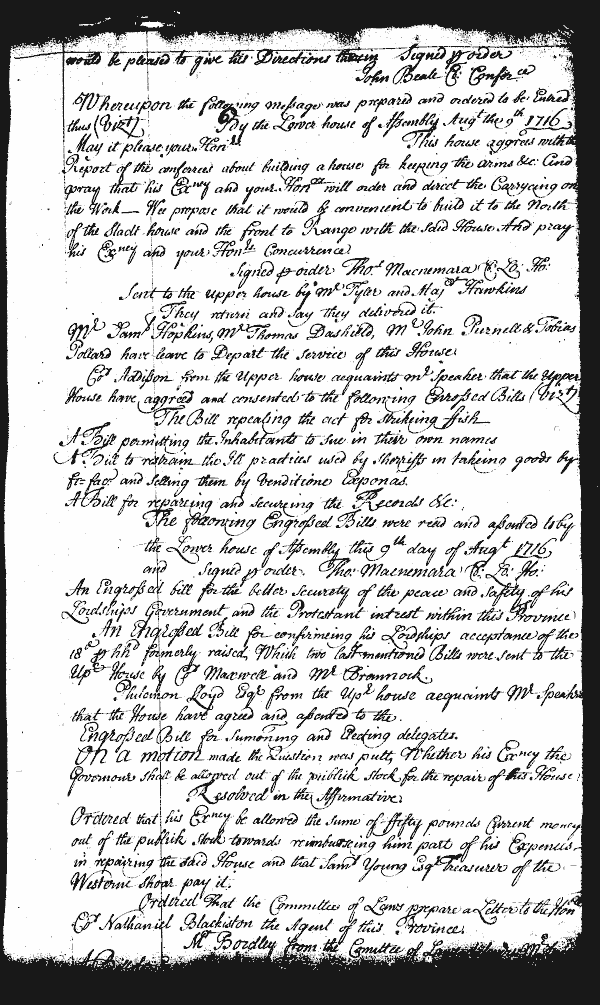 would be pleased to give his Directions therein Signed ꝑ order
John Beale Cl: Confor.ce
Whereupon the following message was prepared and ordered to be Entred
thus (Vizt) By the Lower house of Assembly Augt the 9th 1716
May it please your Honrs This house aggrees with the
Report of the conferees about building a house for keeping the Arms &c: And
pray that his Exncy and your Honrs will order and direct the Carrycing on
the Work — Wee propose that it would be convenient to build it to the North
of the Stadt house and the front to Range with the said House And pray
his Exncy and your Honrs Concurrence
Signed ꝑ order Tho: Macnemara Cl: Lo: Ho:
Sent to the upper house by mr Tyler and Majr Hawkins
They return and say they delivered it.
Mr Saml Hopkins, Mr Thomas Dashield, Mr John Purnell & Tobias
Pollard have leave to Depart the service of this House.
Col Addison from the Upper house acquaints mr Speaker that the Upper
House have aggreed and consented to the following Enrossed Bills (Vizt)
The Bill repealing the act for strikeing ffish
A Bill permitting the Inhabitants to Sue in their own names
A Bill to restrain the Ill practices used by Sherriffs in takeing goods by
fi: fas and selling them by venditione Exponas.
A Bill for repareing and secureing the Records &c:
The following Engrossed Bills were read and assented to by
the Lower house of Assembly this 9th day of Augt 1716
and Signed ꝑ order. Tho: Macnemara Cl: Lo: Ho:
An Engrossed bill for the better Securety of the peace and Safety of his
Lordships Government and the Protestant intrest within this Province
An Engrossed Bill for confirmeing his Lordships acceptance of the
18d ꝑ hhd formerly raised, Which two last mentioned Bills were sent to the
Upr House by Col Maxwell and Mr Brannock
Philemon Loyd Esqr from the Upr house acquaints Mr Speaker
that the House have agreed and assented to the
Engrossed Bill for Sumoning and Electing delegates.
On a motion made the Question was putt, Whether his Exncy the
Governour shall be allowed out of the publick Stock for the repair of this House:
Resolved in the Affirmative
Ordered that his Exncy be allowed the Sume of ffifty pounds Current money
out of the publik Stock towards reimburseing him part of his Expencis
in repairing the said House and that Saml Young Esqr Treasurer of the
Westerne Shoar pay it.
Ordered That the Committee of Laws prepare a Letter to the Honble
Col Nathaniel Blackiston the Agent of this Province
Mr Bordley from the Comittee of